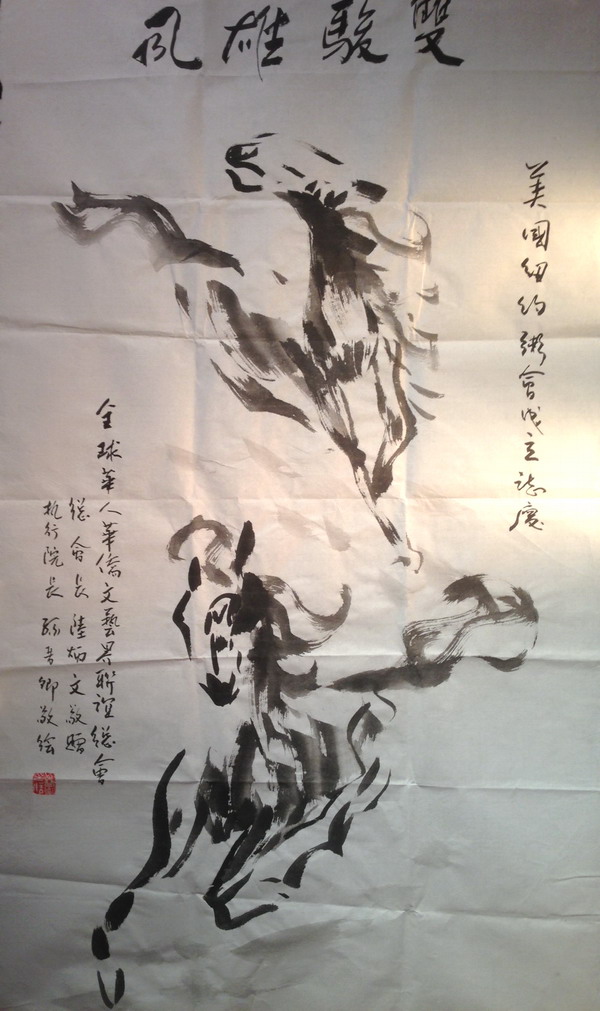 雙駿雄風
美國紐約鄉會成立誌慶
全球華人華僑文藝界聯誼總會
總會長 陸炳文敬贈
執行院長 孫晋卿敬繪